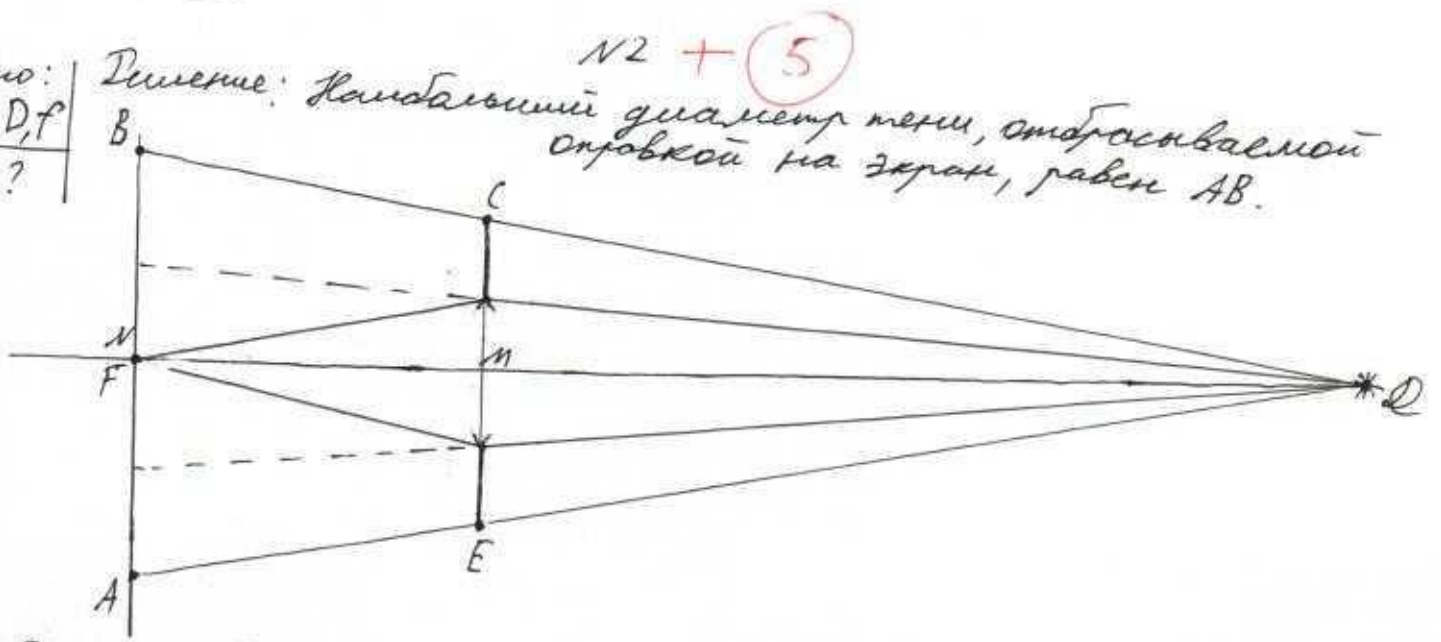 N2 + 5
но: Решение: Наибольший диаметр тени, отбрасываемой
D,f
оправкой на экран, равен AB.
?
B
C
N
M
F
D
E
A